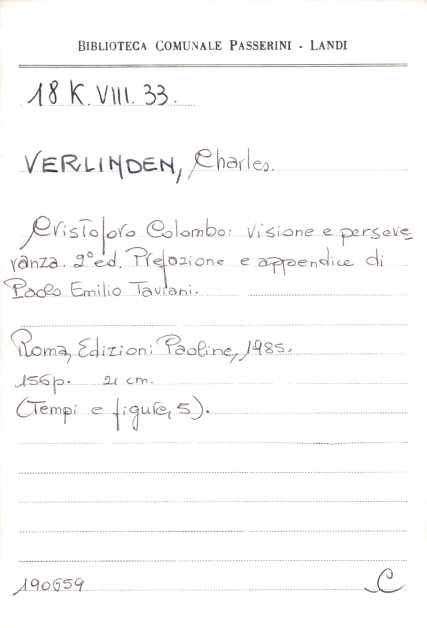 BIBLIOTECA COMUNALE PASSERINI - LANDI
18 K. VIII. 33.
VERLINDEN, Charles.
Cristoforo Colombo: visione e perseve=
ranza. 2ª ed. Prefazione e appendice di
Paolo Emilio Taviani.
Roma, Edizioni Paoline, 1985.
156p. 21 cm.
(Tempi e figure, 5).
190659 C